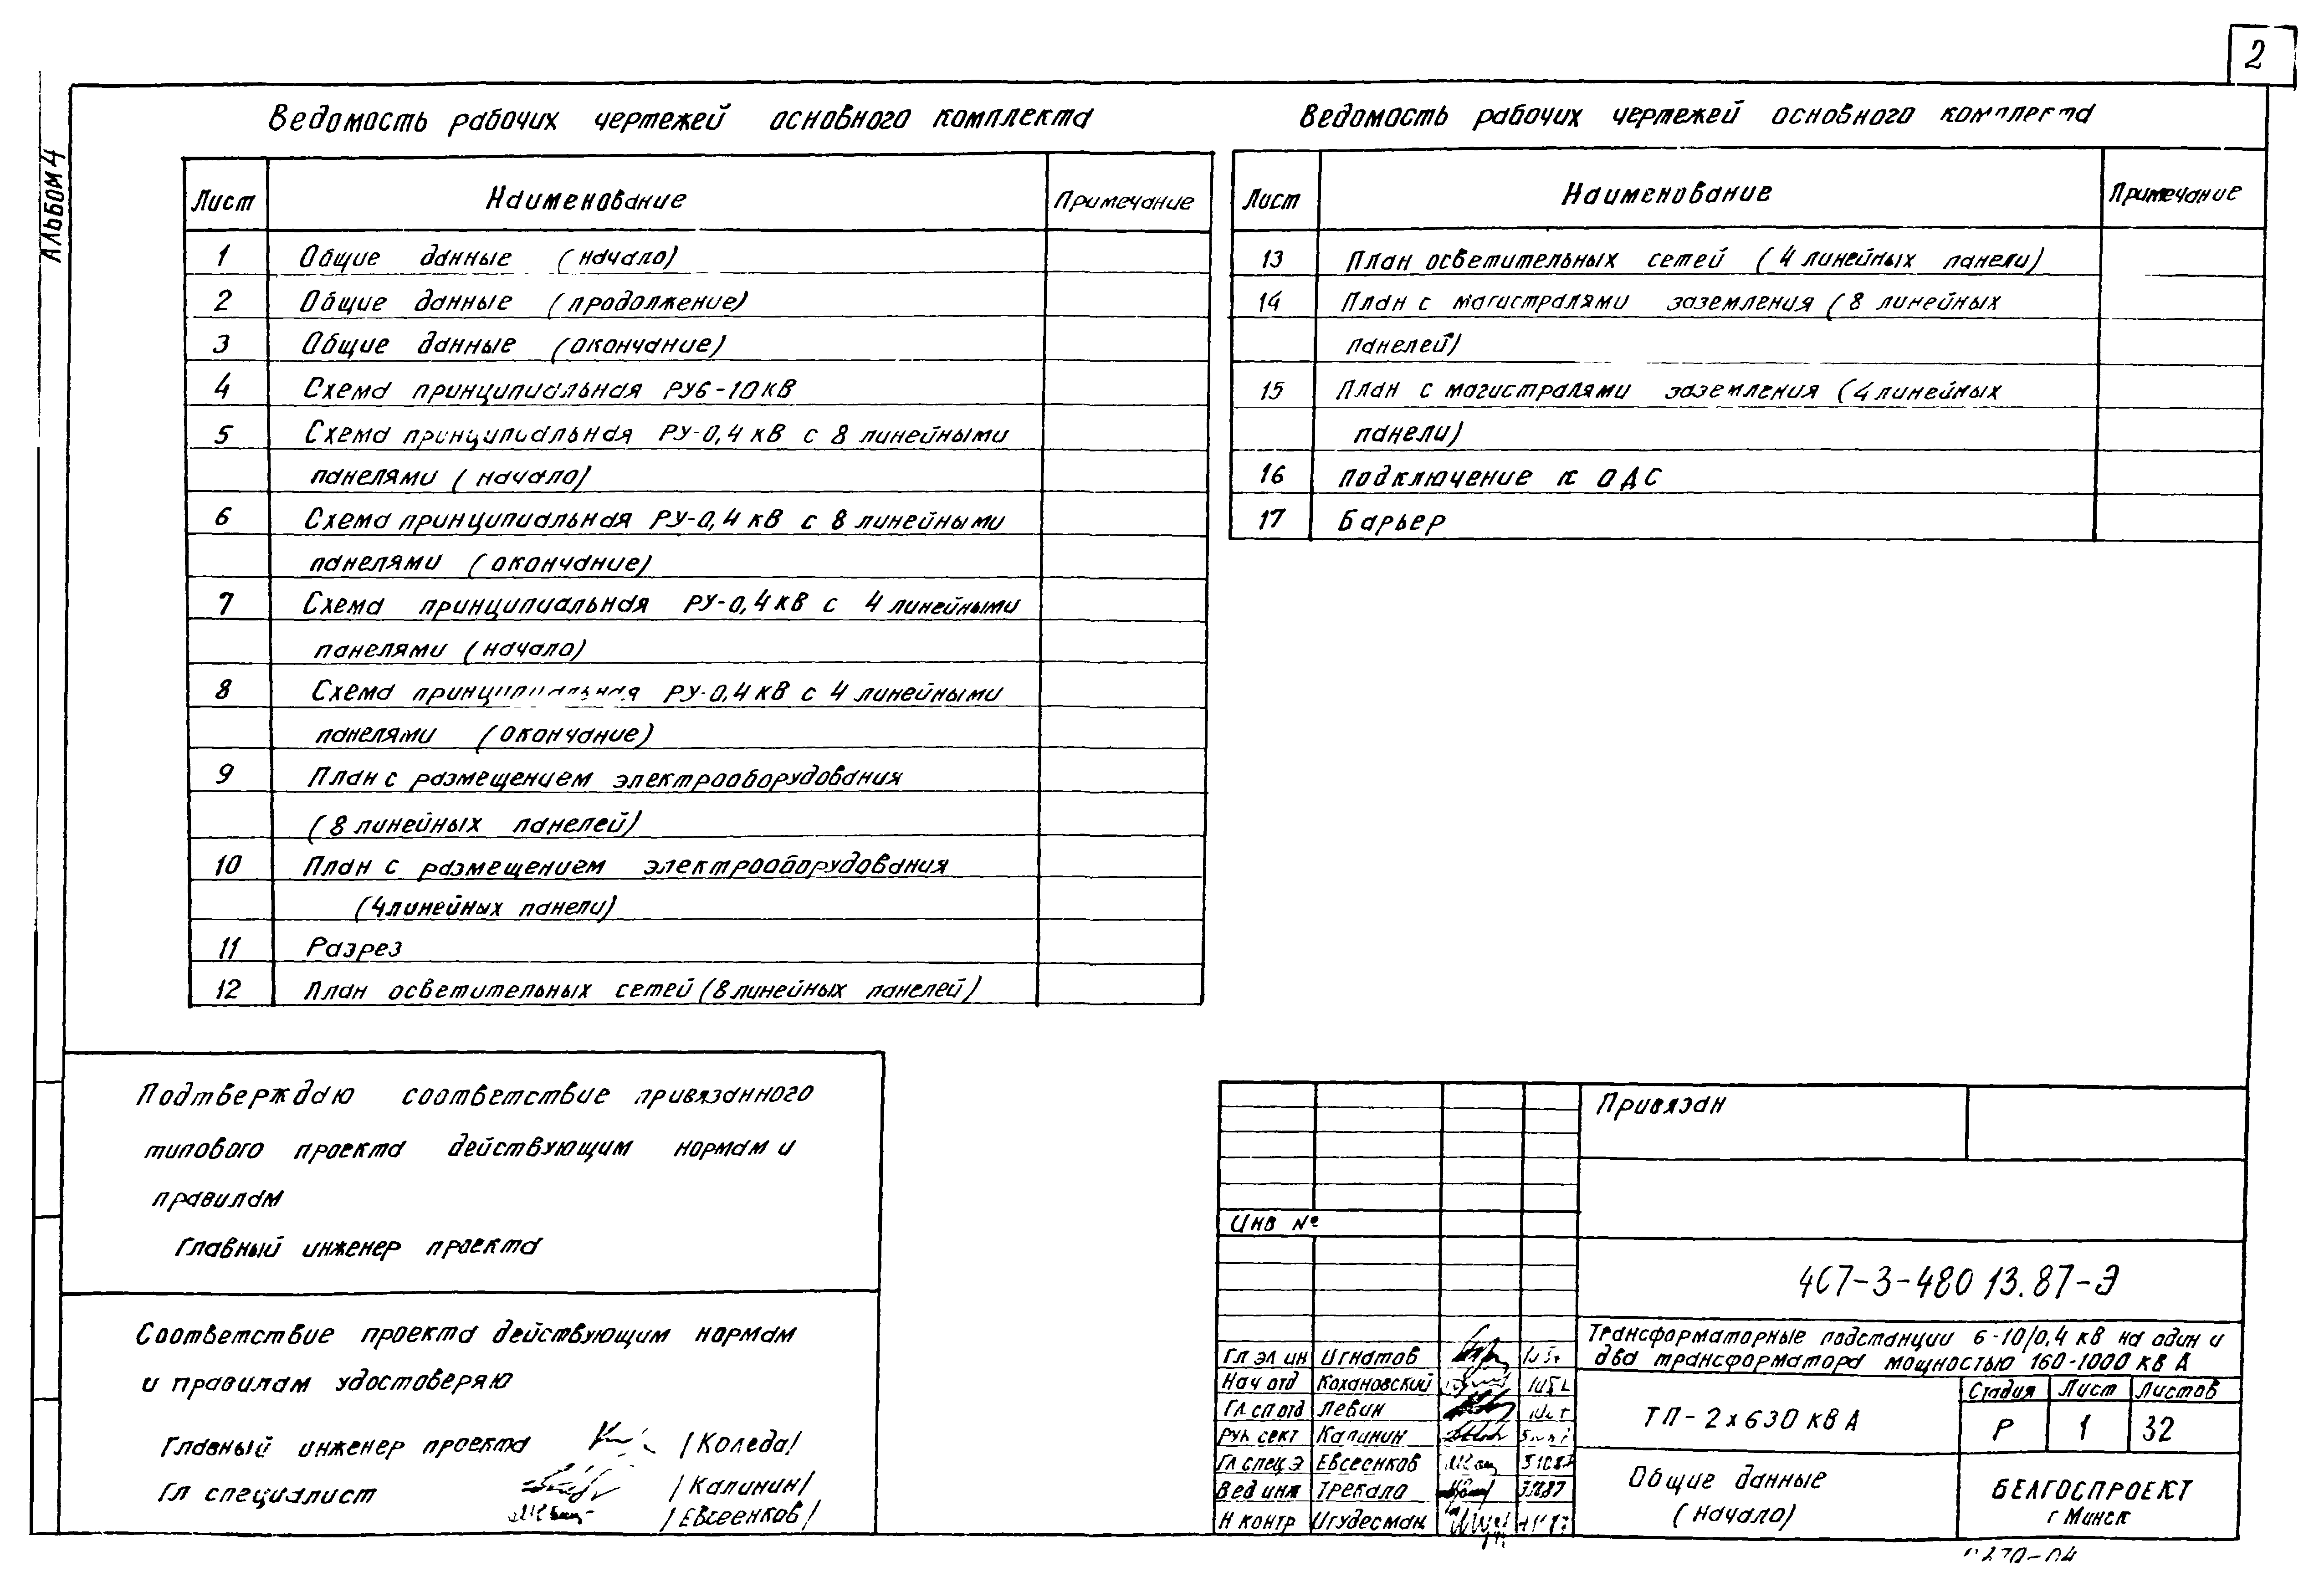 2
Альбом 4
Ведомость рабочих чертежей основного комплекта
Лист Наименование Примечание
1 Общие данные (начало)
2 Общие данные (продолжение)
3 Общие данные (окончание)
4 Схема принципиальная РУ6-10кВ
5 Схема принципиальная РУ-0,4 кВ с 8 линейными
панелями (начало)
6 Схема принципиальная РУ-0,4 кВ с 8 линейными
панелями (окончание)
7 Схема принципиальная РУ-0,4 кВ с 4 линейными
панелями (начало)
8 Схема принципиальная РУ-0,4 кВ с 4 линейными
панелями (окончание)
9 План с размещением электрооборудования
(8 линейных панелей)
10 План с размещением электрооборудования
(4 линейных панели)
11 Разрез
12 План осветительных сетей (8 линейных панелей)
Ведомость рабочих чертежей основного комплекта
Лист Наименование Примечание
13 План осветительных сетей (4 линейных панели)
14 План с магистралями заземления (8 линейных
панелей)
15 План с магистралями заземления (4 линейных
панели)
16 Подключение к ОДС
17 Барьер
Подтверждаю соответствие привязанного
типового проекта действующим нормам и
правилам
Главный инженер проекта
Соответствие проекта действующим нормам
и правилам удостоверяю
Главный инженер проекта /Коледа/
Гл специалист /Калинин/
/Евсеенков/
Привязан
Инв №
407-3-480 13.87-Э
Трансформаторные подстанции 6-10/0,4 кВ на один и
два трансформатора мощностью 160-1000 кВ А
Гл эл ин Игнатов
Нач отд Кохановский
Гл сп отд Левин
Рук сект Калинин
Гл спец э Евсеенков
Вед инж Трекало
Н контр Игудесман
ТП-2х630 кВ А
Стадия Лист Листов
Р 1 32
Общие данные
(начало)
БЕЛГОСПРОЕКТ
г Минск